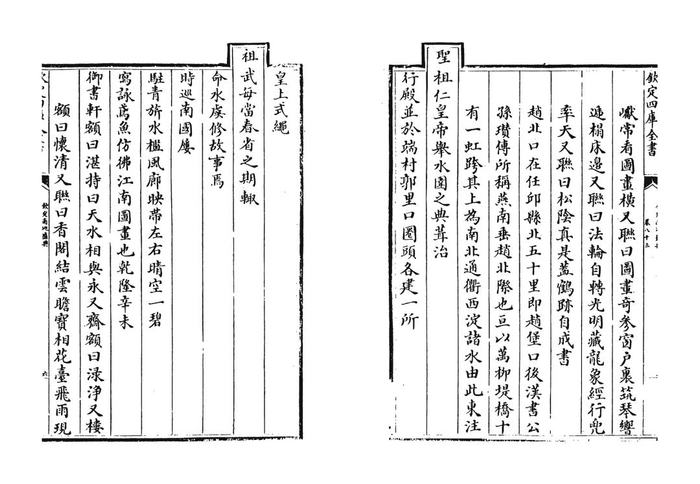 欽定四庫全書
卷八十三
巘常看圖畫橫又聯曰圖畫奇參窗户裏筑琴響
逓榻床邊又聯曰法輪自轉光明藏龍象經行兜
率天又聯曰松陰真是蓋鶴跡自成書
趙北口在任邱縣北五十里即趙堡口後漢書公
孫瓚傳所稱燕南垂趙北際也亘以萬柳堤橋十
有一虹跨其上為南北通衢西淀諸水由此東注
聖祖仁皇帝舉水圍之典葺治
行殿並於端村郭里口圈頭各建一所
皇上式繩
祖武每當春省之期輒
命水虞修故事焉
時巡南國屢
駐青旂水檻風廊映帶左右晴空一碧
寫詠鳶魚仿彿江南圖畫也乾隆辛未
御書軒額曰湛持曰天水相與永又齋額曰渌淨又樓
額曰懷清又聯曰香閣結雲瞻寶相花臺飛雨現